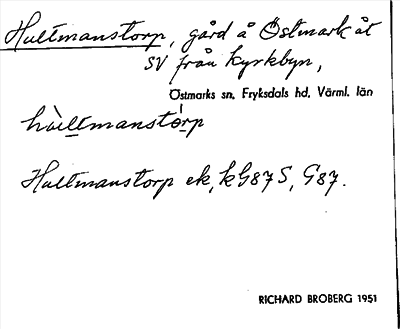 Hultmanstorp, gård å Östmark åt
SV från kyrkbyn,
Östmarks sn, Fryksdals hd, Värml. län
hùltmanstórp
Hultmanstorp ek, kG87S, G87.
RICHARD BROBERG 1951